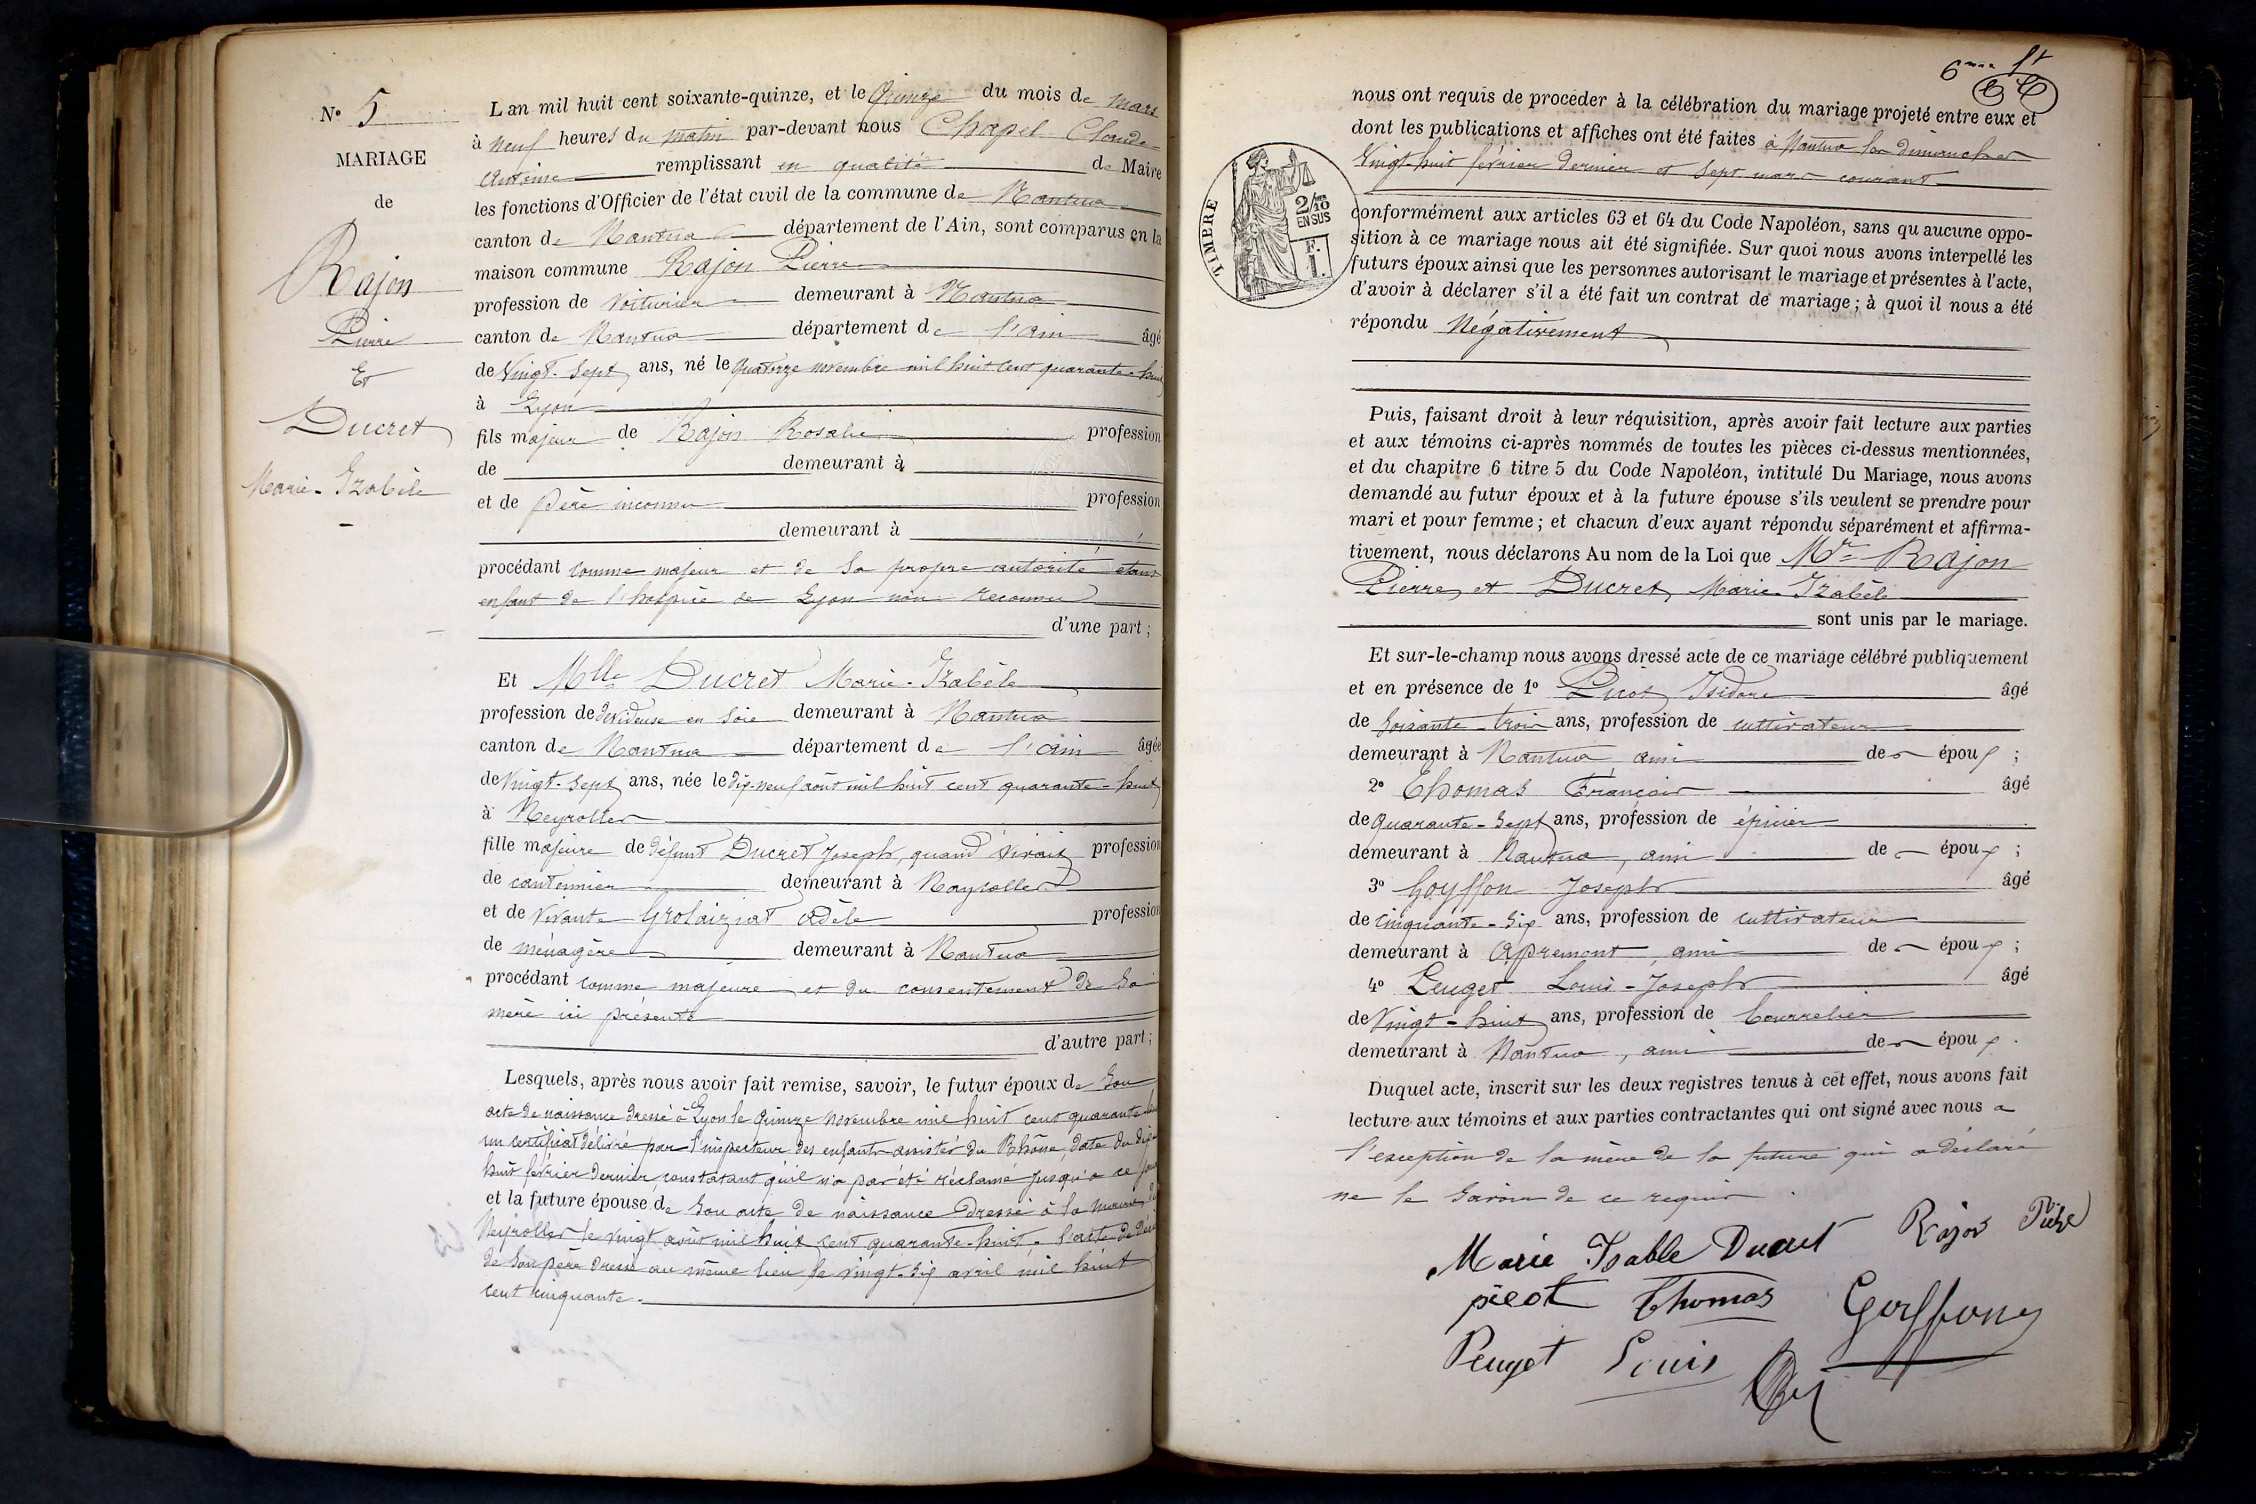 N° 5
MARIAGE
de
Rajon
Pierre
Et
Ducret
Marie-Izabèle
L'an mil huit cent soixante-quinze, et le Quinze du mois de mars
à neuf heures du matin par-devant nous Chapel Claude
Antoine remplissant en qualité de Maire
les fonctions d'Officier de l'état civil de la commune de Nantua
canton de Nantua département de l'Ain, sont comparus en la
maison commune Rajon Pierre
profession de voiturier demeurant à Nantua
canton de Nantua département de l'ain âgé
de Vingt-Sept ans, né le quatorze novembre mil huit cent quarante-huit
à Lyon
fils majeur de Rajon Rosalie profession
de demeurant à
et de père inconnu profession
demeurant à
procédant comme majeur et de sa propre autorité étant
enfant de l'hospice de Lyon non reconnu
d'une part;
Et Mlle Ducret Marie-Izabèle
profession de dévideuse en soie demeurant à Nantua
canton de Nantua département de l'ain âgée
de Vingt-Sept ans, née le dix-neuf août mil huit cent quarante-huit
à Neyrolles
fille majeure de défunt Ducret Joseph, quand vivait profession
de cantonnier demeurant à Neyrolles
et de vivante Grosaiziat adèle profession
de ménagère demeurant à Nantua
procédant comme majeure et du consentement de sa
mère ici présente
d'autre part;
Lesquels, après nous avoir fait remise, savoir, le futur époux de son
acte de naissance dressé à Lyon le Quinze novembre mil huit cent quarante huit
un certificat délivré par l'inspecteur des enfants assistés du Rhône, date du dix
huit février dernier, constatant qu'il n'a pas été réclamé jusqu'à ce jour
et la future épouse de son acte de naissance dressé à la mairie de
Neyrolles le vingt août mil huit cent quarante-huit. l'acte de décès
de son père dressé au même lieu le vingt-six avril mil huit
cent cinquante.
6me ft
nous ont requis de procéder à la célébration du mariage projeté entre eux et
dont les publications et affiches ont été faites à Nantua les dimanches
Vingt-huit février dernier et sept mars courant
TIMBRE
2/10
EN SUS
F.
1.
conformément aux articles 63 et 64 du Code Napoléon, sans qu'aucune oppo-
sition à ce mariage nous ait été signifiée. Sur quoi nous avons interpellé les
futurs époux ainsi que les personnes autorisant le mariage et présentes à l'acte,
d'avoir à déclarer s'il a été fait un contrat de mariage; à quoi il nous a été
répondu Négativement
Puis, faisant droit à leur réquisition, après avoir fait lecture aux parties
et aux témoins ci-après nommés de toutes les pièces ci-dessus mentionnées,
et du chapitre 6 titre 5 du Code Napoléon, intitulé Du Mariage, nous avons
demandé au futur époux et à la future épouse s'ils veulent se prendre pour
mari et pour femme; et chacun d'eux ayant répondu séparément et affirma-
tivement, nous déclarons Au nom de la Loi que Mr Rajon
Pierre et Ducret Marie Izabèle
sont unis par le mariage.
Et sur-le-champ nous avons dressé acte de ce mariage célébré publiquement
et en présence de 1° Picot Isidore âgé
de soixante-trois ans, profession de cultivateur
demeurant à Nantua, ami de époux;
2° Thomas François âgé
de quarante-Sept ans, profession de épicier
demeurant à Nantua, ami de époux;
3° Goyffon Joseph âgé
de cinquante-six ans, profession de cultivateur
demeurant à Apremont, ami de époux;
4° Peuget Louis-Joseph âgé
de Vingt-huit ans, profession de bourrelier
demeurant à Nantua, ami de époux.
Duquel acte, inscrit sur les deux registres tenus à cet effet, nous avons fait
lecture aux témoins et aux parties contractantes qui ont signé avec nous a
l'exception de la mère de la future qui a déclaré
ne le savoir de ce requis.
Marie Isable Ducret Rajon
picot Thomas Goyffon
Peuget Louis